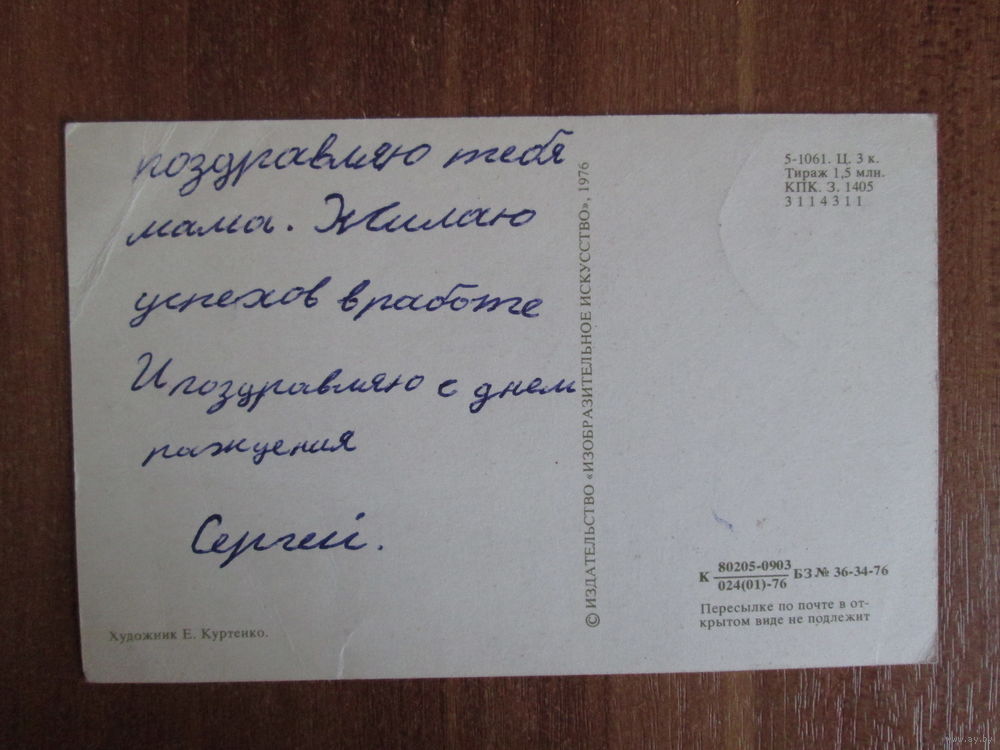 поздравляю тебя
мама. Жилаю
успехов в работе
И поздравляю с днем
раждения
Сергей.
Художник Е. Куртенко.
© ИЗДАТЕЛЬСТВО «ИЗОБРАЗИТЕЛЬНОЕ ИСКУССТВО», 1976
5-1061. Ц. 3 к.
Тираж 1,5 млн.
КПК. З. 1405
3114311
К 80205-0903
024(01)-76 БЗ № 36-34-76
Пересылке по почте в от-
крытом виде не подлежит
www.ay.by